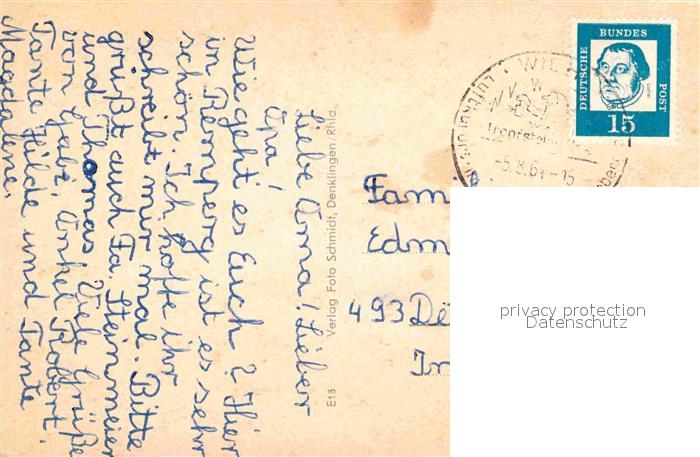 Liebe Oma! Lieber
Opa!
Wie geht es Euch? Hier
in Remperg ist es sehr
schön. Ich hoffe ihr
schreibt mir mal. Bitte
grüßt auch Fa. Steinmeier
und Thomas Viele Grüße
von Gabi, Onkel Robert.
Tante Hilde und Tante
Magdalene.
E18 Verlag Foto Schmidt, Denklingen/Rhld.
DEUTSCHE
BUNDES
POST
Luther
15
WIE
-5.8.61-15
Fam
Edm
493 De
In
privacy protection
Datenschutz